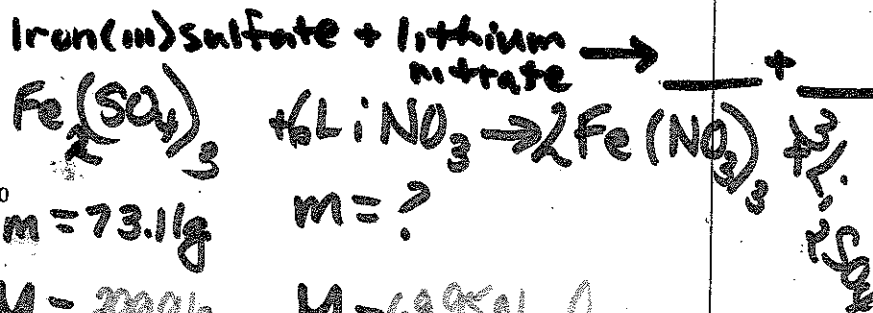 Iron(III) sulfate + lithium
nitrate → ___ + ___
Fe2(SO4)3 + 6LiNO3 → 2Fe(NO3)3 +
m = 73.11g m = ?
M = M =